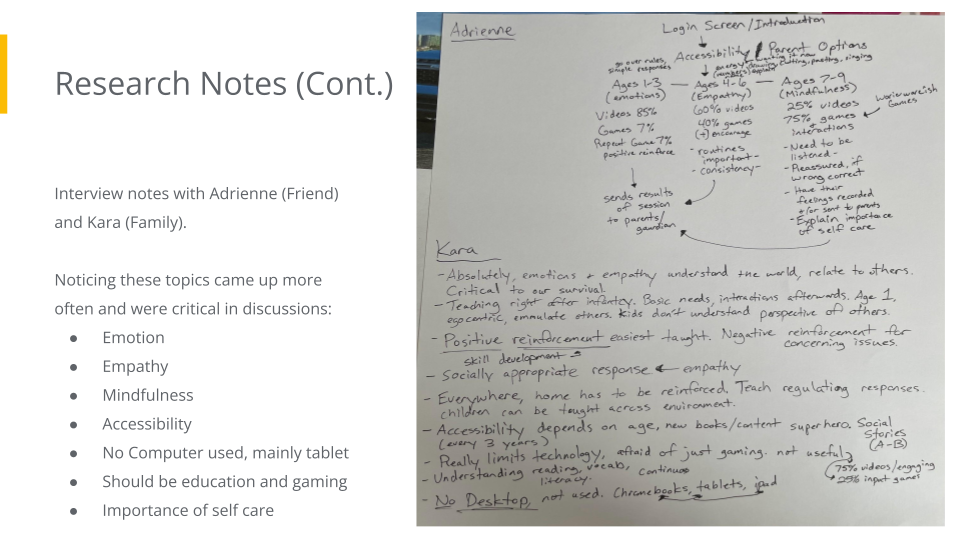 Research Notes (Cont.)
Interview notes with Adrienne (Friend)
and Kara (Family).
Noticing these topics came up more
often and were critical in discussions:
● Emotion
● Empathy
● Mindfulness
● Accessibility
● No Computer used, mainly tablet
● Should be education and gaming
● Importance of self care
Adrienne
Login Screen/Introduction
Accessibility / Parent Options
go over rules,
simple responses
energy, drawing, cutting, pasting, singing
(numbers) explain
Ages 1-3 — Ages 4-6 — Ages 7-9
(emotions) (Empathy) (Mindfulness)
Videos 85%
Games 7%
Repeat Game 7%
positive reinforce
60% videos
40% games
(+) encourage
- routines
important -
- consistency -
25% videos
75% games
+
interactions
Games
- Need to be
listened -
- Reassured, if
wrong correct
- Have their
feelings recorded
+/or sent to parents
- Explain importace
of self care
sends results
of session
to parents/
guardian
Kara
- Absolutely, emotions + empathy understand the world, relate to others.
Critical to our survival.
- Teaching right after infancy. Basic needs, interactions afterwards. Age 1,
egocentric, emmulate others. Kids don't understand perspective of others.
- Positive reinforcement easiest taught. Negative reinforcement for
concerning issues.
skill development
- Socially appropriate response ← empathy
- Everywhere, home has to be reinforced. Teach regulating responses.
children can be taught across environment.
- Accessibility depends on age, new books/content superhero. Social
Stories
(A-B)
(every 3 years)
- Really limits technology, affraid of just gaming. not useful
- Understanding reading, vocab, continue
literacy.
(75% videos/engaging
25% input games
- No Desktop, not used. Chromebooks, tablets, ipad